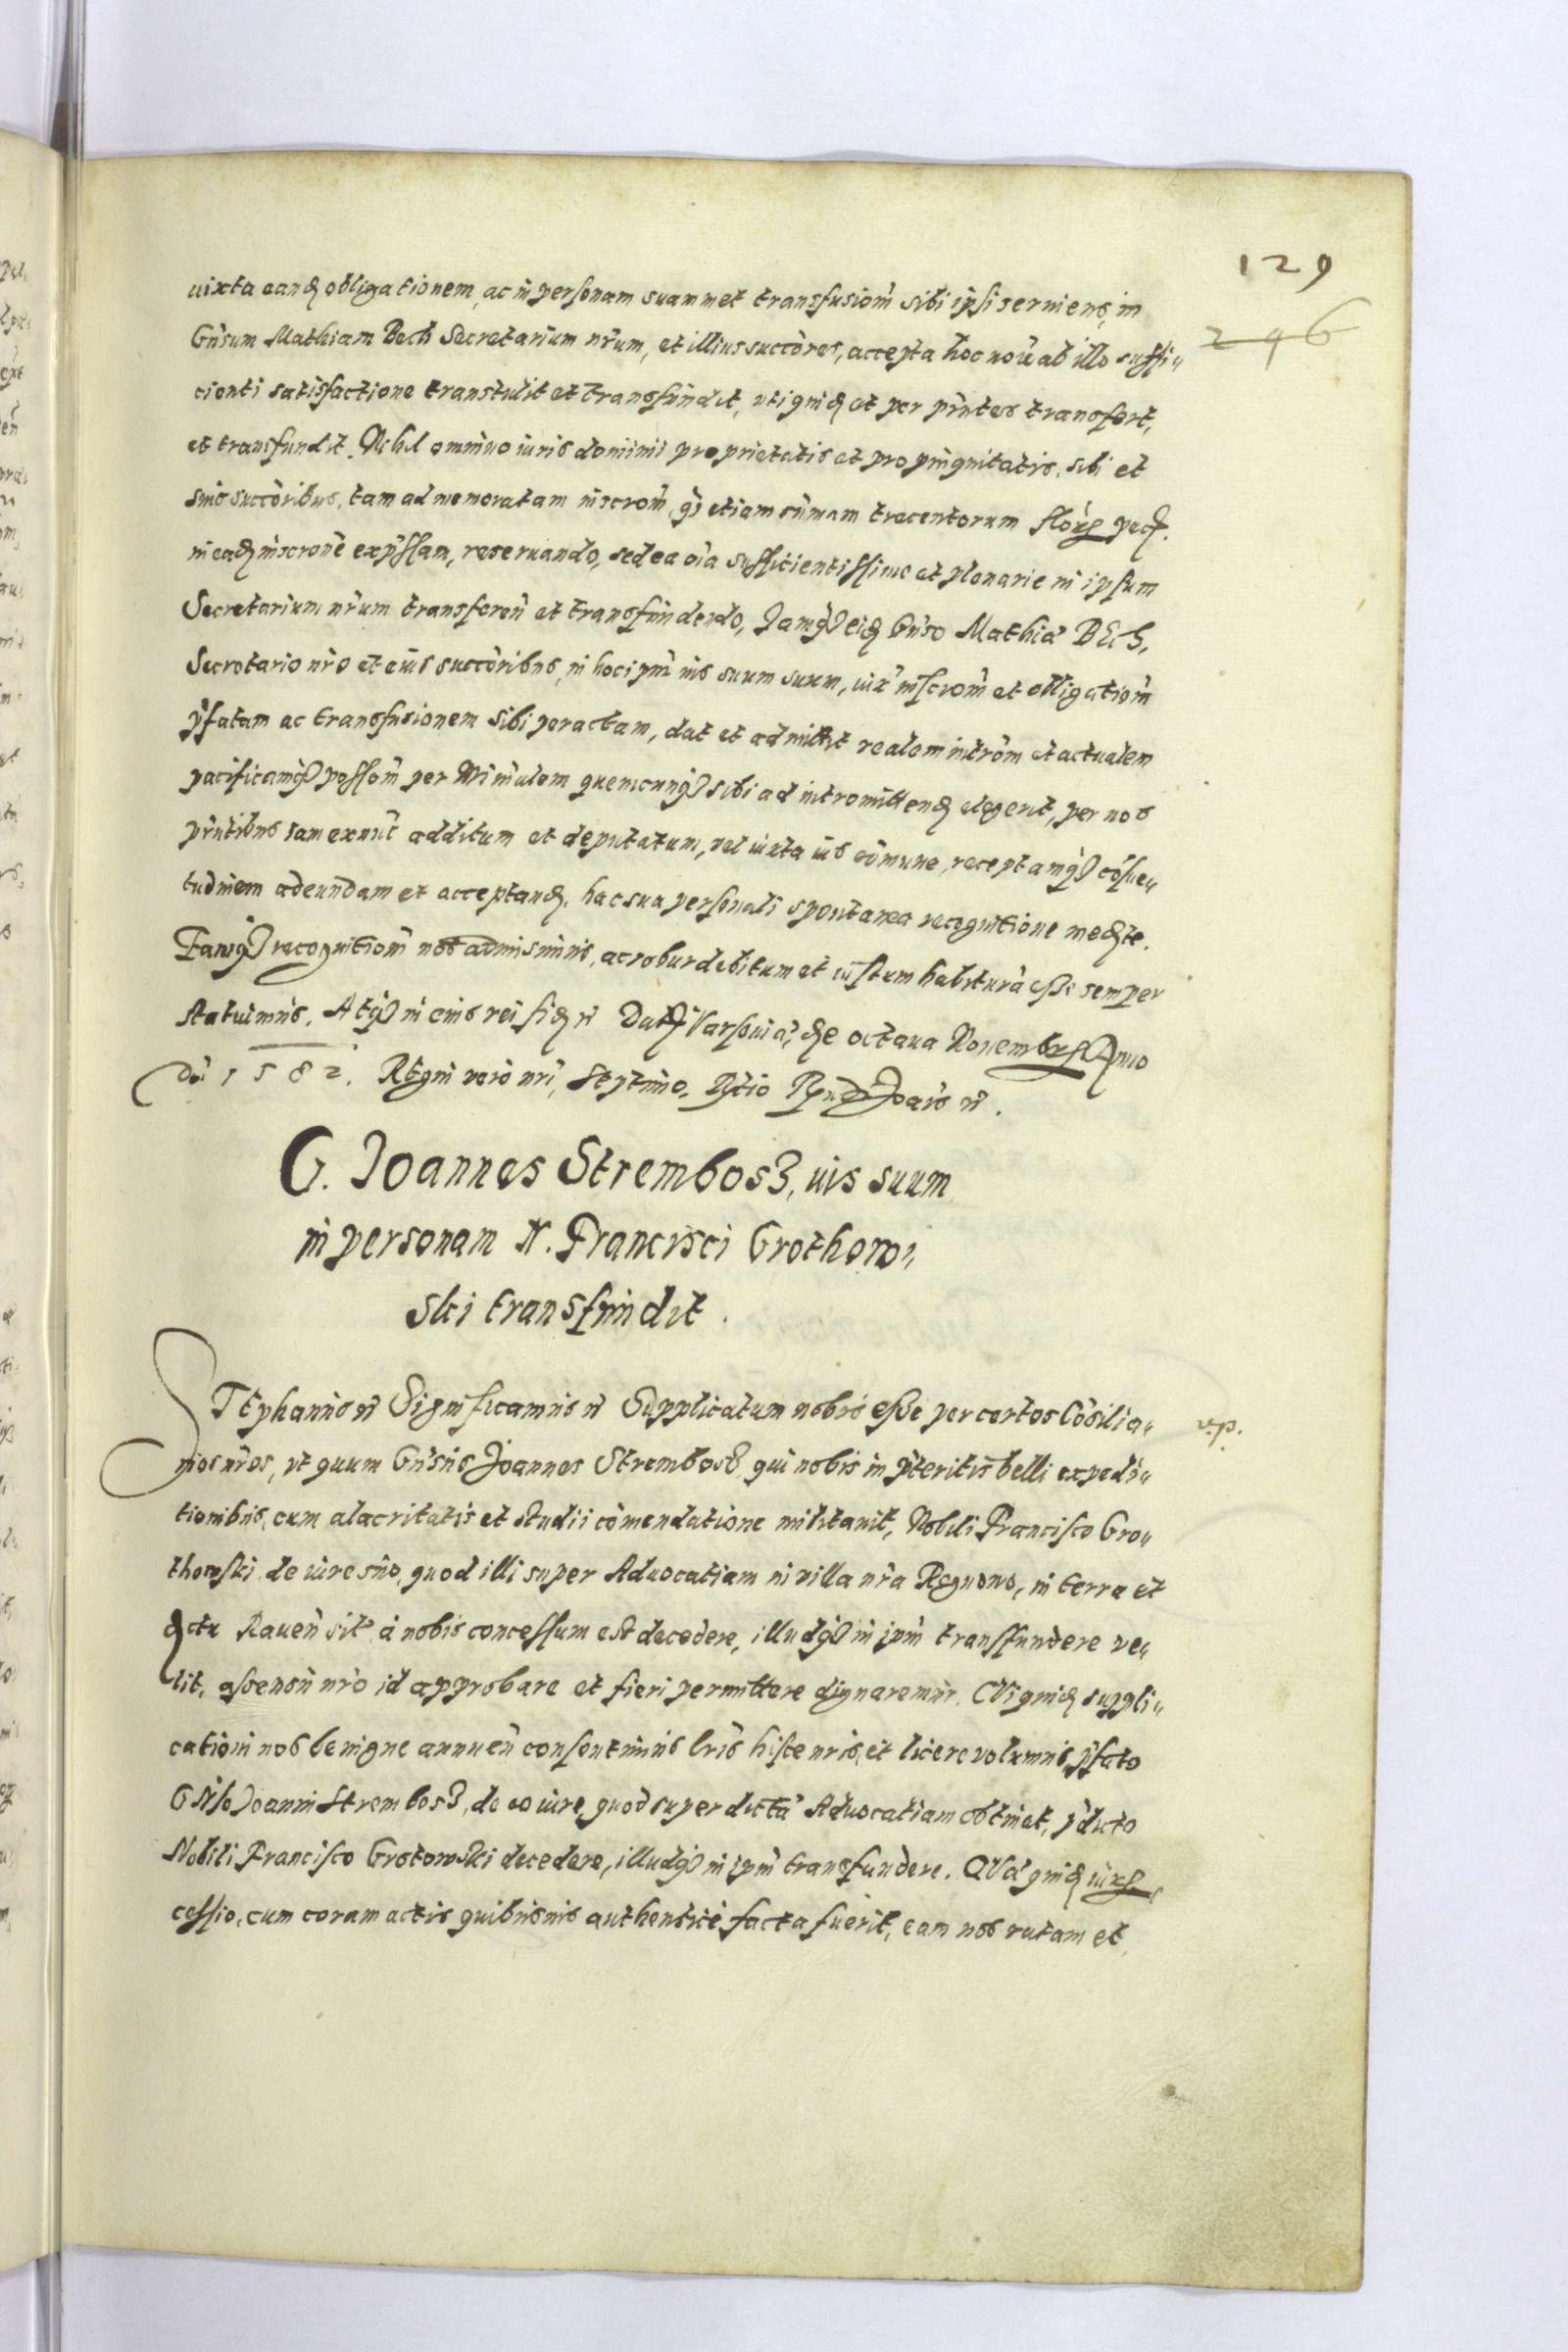 129
246
iuxta eandẽ obligationem, ac in personam suammet transfusiom̃ sibi ipsi seruiens, in
Gñsum Mathiam Bech Secretarium nr̃um, et illius succores, accepta hoc no͠ie ab illo suffi„
cienti satisfactione transtulit et transfundit, uti quidẽ et per pñtes transfert,
et transfundit. Nihil omnino iuris dominii proprietatis et propinquitatis, sibi et
suis succoribus, tam ad memoratam inscrom̃, q̃ etiam sum̃am trecentorum flor̃ pecũ.
in eadẽ inscrone exp̃ssam, reseruando, sed ea oĩa sufficientissime et plenarie in ipsum
Secretarium nr̃um transferen̄ et transfundendo, Iamq̃ eidẽ Gñso Mathiæ BEch,
Secretario nr̃o et eius succoribus, in hoc ip̃m ius suum suum, iux̃ inscrom̃ et obligatiom̃
p̃fatam ac transfusionem sibi peractam, dat et admittit realem intrõm et actualem
pacificamq̃ possom̃ per Min̄ulem quemcunq̃ sibi ad intromittendẽ elegerit, per nos
pñtibus iam ex nuc̃ additum et deputatum, vel iuxta ius com̃une, receptamq̃ cõsue„
tudinem adeundam et acceptandẽ, hac sua personali spontanea recognitione medĩte.
Eamq̃ recognitiom̃ nos admisimus, ac robur debitum et iustum habiturã esse semper
statuimus. Atq̃ in cuius rei fidẽ et̃ Datũ Varsouiæ, die octaua Nouembris Anno
Dñi 1582. Regni vero nr̃i, Septimo. R̃tio R̃ndi Joañis et̃.
G. Joannes Strembosz, ius suum
in personam N. Francisci Grothow„
ski transfundit.
STephanus et̃ Significamus et̃ Supplicatum nobis esse per certos Cõsilia„
rios nr̃os, ut quum Gñsus Joannes Strembosz, qui nobis in p̃teritis belli expedi„
tionibus, cum alacritatis et studii com̃endatione militauit, Nobili Francisco Gro„
thowski de iure suo, quod illi super Aduocatiam in villa nr̃a Regnowo, in terra et
dctu Rauen̄ sit̃ à nobis concessum est decedere, illudq̃ in ip̃m transfundere ve„
lit, assensu nr̃o id approbare et fieri permittere dignaremur. CVi quidẽ suppli„
cationi nos benigne annuen̄ consentimus lr̃is hisce nr̃is, et licere volumus, p̃fato
Gñso Joanni Strembosz, de eo iure, quod super dictã Aduocatiam obtinet, p̃dicto
Nobili Francisco Grotowski decedere, illudq̃ in ip̃m transfundere. QVæ quidẽ iuris
cessio, cum coram actis quibusuis authenticè facta fuerit, eam nos ratam et
v.p.